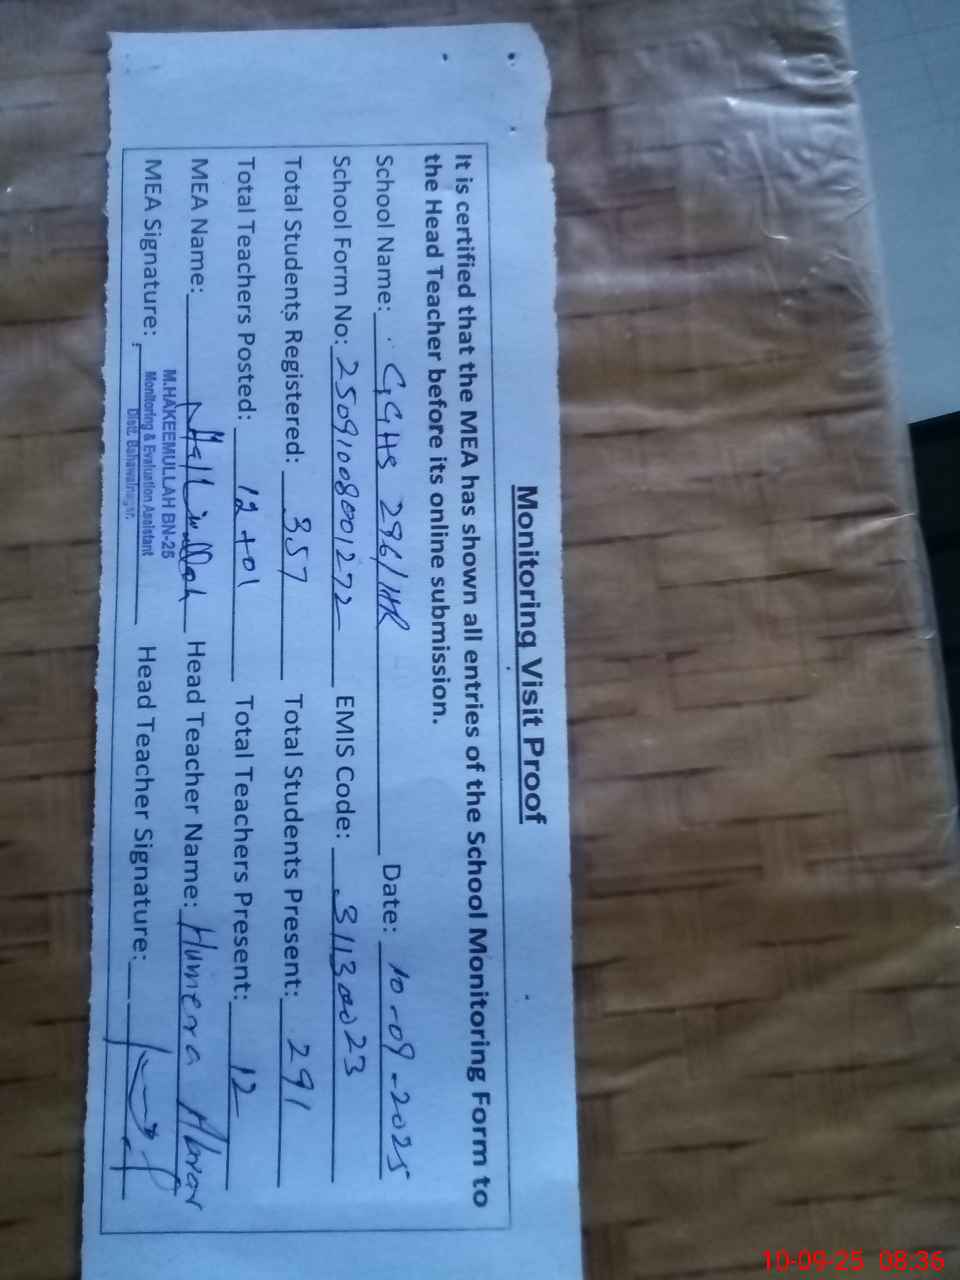 Monitoring Visit Proof
It is certified that the MEA has shown all entries of the School Monitoring Form to
the Head Teacher before its online submission.
School Name: GGHS 296/HR Date: 10-09-2025
School Form No: 25091008001272 EMIS Code: 31130023
Total Students Registered: 357 Total Students Present: 291
Total Teachers Posted: 12+01 Total Teachers Present: 12
MEA Name: Head Teacher Name: Humera Abrar
MEA Signature: Head Teacher Signature:
M.HAKEEMULLAH BN-25
Monitoring & Evaluation Assistant
Distt. Bahawalnagar.
10-09-25 08:36